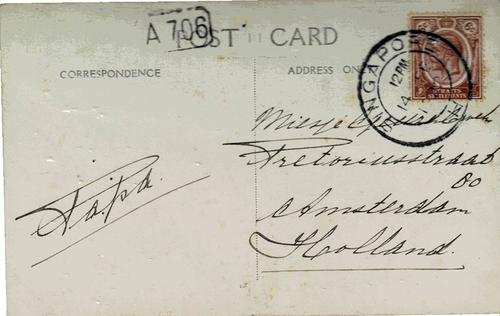 A 706
POST CARD
CORRESPONDENCE
ADDRESS ON
SINGAPORE
12 PM
STRAITS
SETTLEMENTS
Pretoriusstraat
80
Amsterdam
Holland.
Papa.